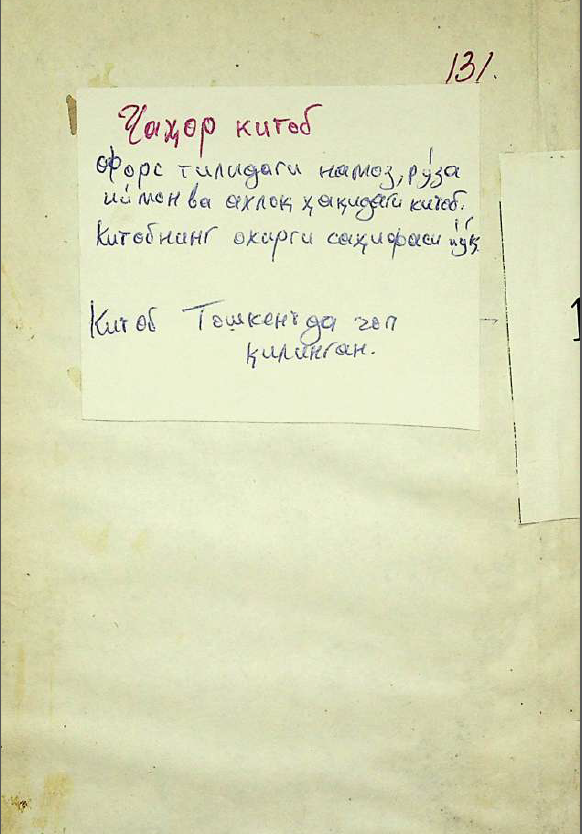 131.
Чаҳор китоб
Форс тилидаги намоз, рўза
иймон ва ахлоқ ҳақидаги китоб.
Китобнинг охирги саҳифаси йўқ
Китоб Тошкентда чоп
қилинган.
1